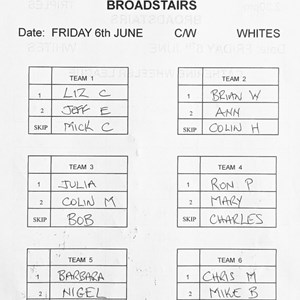 BROADSTAIRS
Date: FRIDAY 6th JUNE C/W WHITES
TEAM 1
1 LIZ C
2 JEFF E
SKIP MICK C
TEAM 2
1 BRIAN W
2 ANN
SKIP COLIN H
TEAM 3
1 JULIA
2 COLIN M
SKIP BOB
TEAM 4
1 RON P
2 MARY
SKIP CHARLES
TEAM 5
1 BARBARA
2 NIGEL
TEAM 6
1 CHRIS M
2 MIKE B